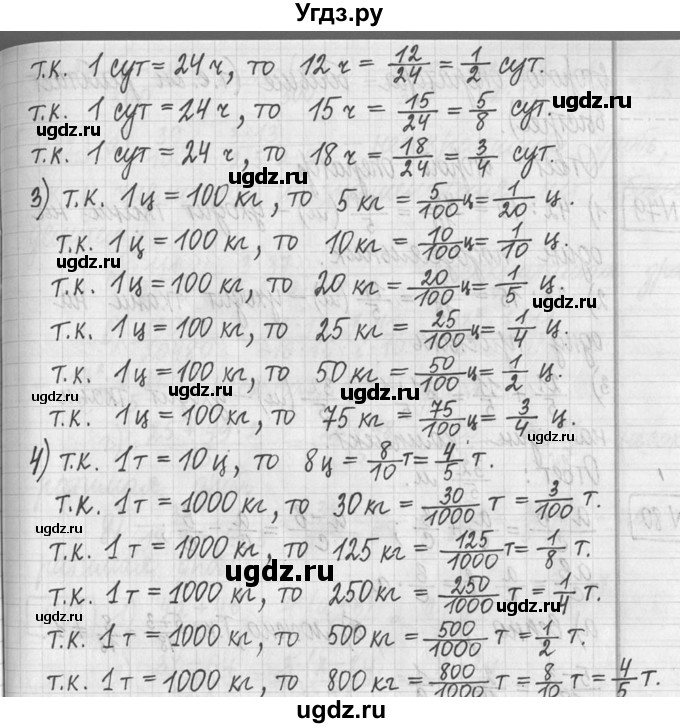 Угдз.ру
т.к. 1 сут = 24 ч, то 12 ч = 12/24 = 1/2 сут.
т.к. 1 сут = 24 ч, то 15 ч = 15/24 = 5/8 сут.
ugdz.ru ugdz.ru
т.к. 1 сут = 24 ч, то 18 ч = 18/24 = 3/4 сут.
ugdz.ru
3) т.к. 1 ц = 100 кг, то 5 кг = 5/100 ц = 1/20 ц.
т.к. 1 ц = 100 кг, то 10 кг = 10/100 ц = 1/10 ц.
ugdz.ru
т.к. 1 ц = 100 кг, то 20 кг = 20/100 ц = 1/5 ц.
ugdz.ru
т.к. 1 ц = 100 кг, то 25 кг = 25/100 ц = 1/4 ц.
т.к. 1 ц = 100 кг, то 50 кг = 50/100 ц = 1/2 ц.
ugdz.ru ugdz.ru ugdz.ru
т.к. 1 ц = 100 кг, то 75 кг = 75/100 ц = 3/4 ц.
ugdz.ru
4) т.к. 1 т = 10 ц, то 8 ц = 8/10 т = 4/5 т.
т.к. 1 т = 1000 кг, то 30 кг = 30/1000 т = 3/100 т.
ugdz.ru
т.к. 1 т = 1000 кг, то 125 кг = 125/1000 т = 1/8 т.
ugdz.ru
т.к. 1 т = 1000 кг, то 250 кг = 250/1000 т = 1/4 т.
ugdz.ru ugdz.ru
т.к. 1 т = 1000 кг, то 500 кг = 500/1000 т = 1/2 т.
т.к. 1 т = 1000 кг, то 800 кг = 800/1000 т = 8/10 т = 4/5 т.
ugdz.ru